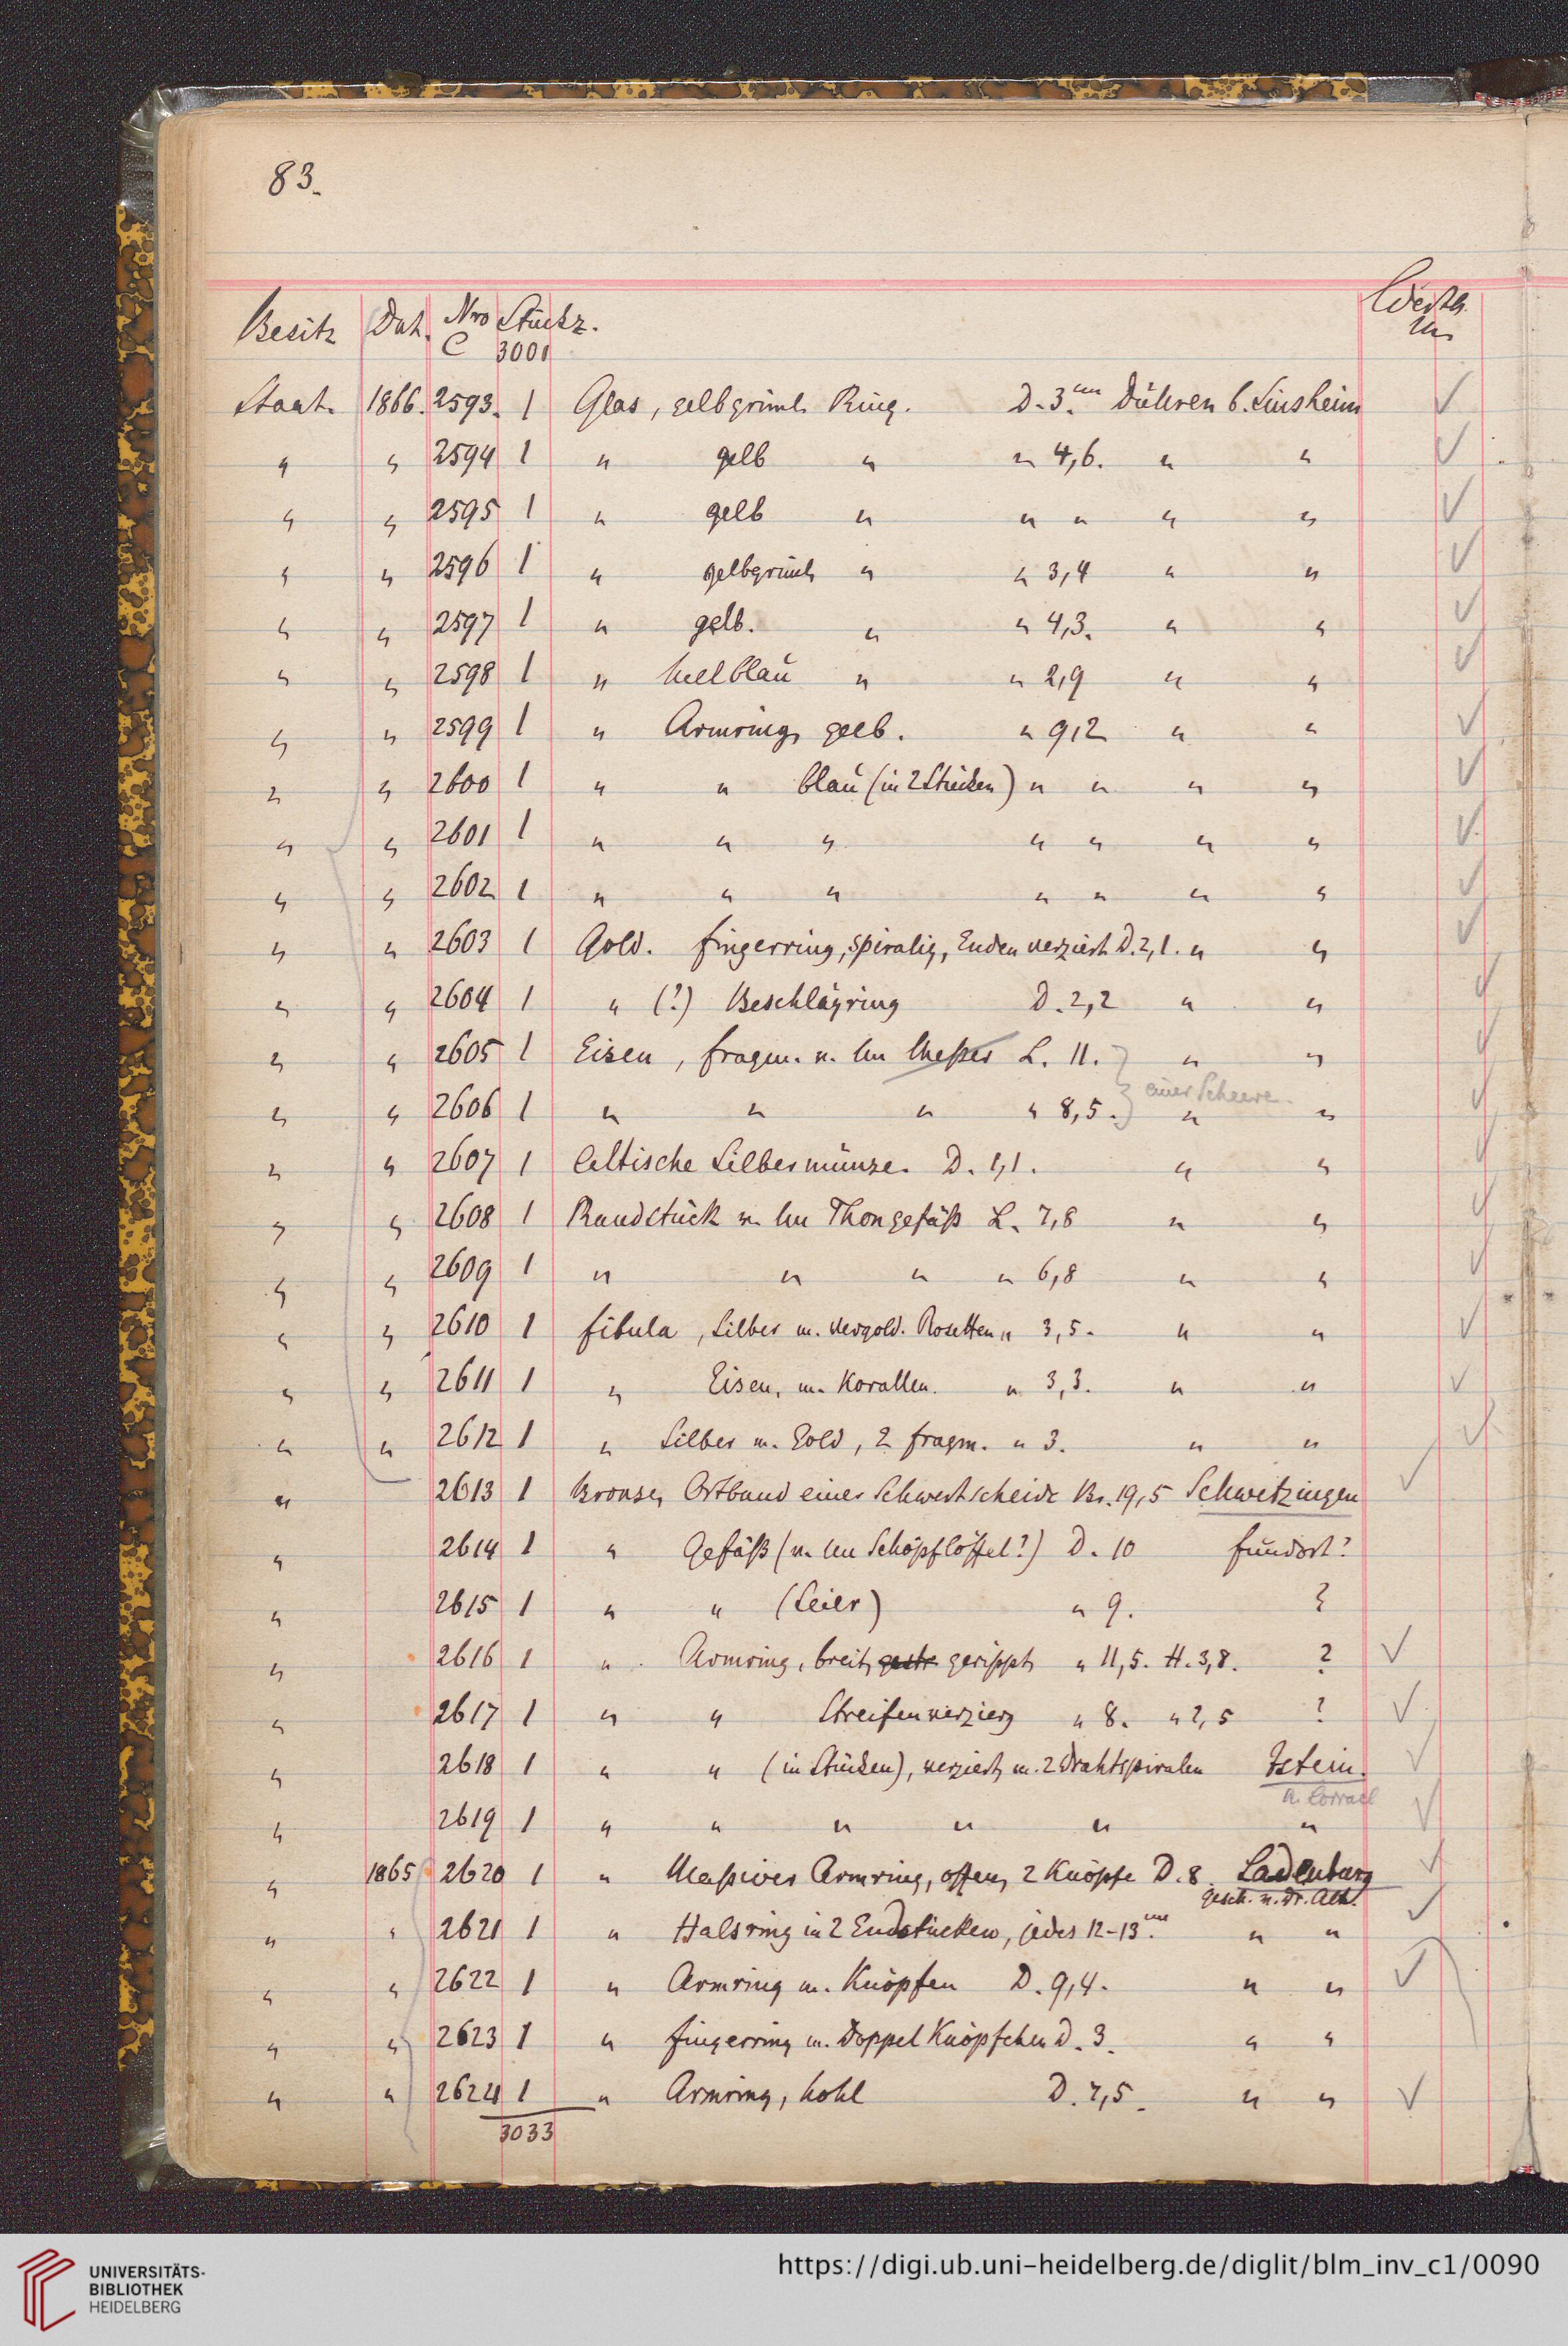 83.
Besitz Dat. Nro Stückz. Werth
C 3001 M.
Staat. 1866. 2593. 1 Glas, gelbgrünl. Ring. D. 3. cm Dühren b. Sinsheim
" " 2594 1 " gelb " " 4,6. " "
" " 2595 1 " gelb " " " " "
" " 2596 1 " gelbgrünl. " " 3,4 " "
" " 2597 1 " gelb. " " 4,3. " "
" " 2598 1 " hellblau " " 2,9 " "
" " 2599 1 " Armring, gelb. " 9,2 " "
" " 2600 1 " " blau (in 2 Stücken) " " " "
" " 2601 1 " " " " " " "
" " 2602 1 " " " " " " "
" " 2603 1 Gold. Fingerring, spiralig, Enden verziert D. 2,1. " "
" " 2604 1 " (?) Beschlägring D. 2,2 " "
" " 2605 1 Eisen, Fragm. v. Messer L. 11. " "
einer Scheere.
" " 2606 1 " " " " 8,5. " "
" " 2607 1 Celtische Silbermünze. D. 1,1. " "
" " 2608 1 Randstück v. Thongefäß L. 7,8 " "
" " 2609 1 " " " " 6,8 " "
" " 2610 1 Fibula, Silber m. vergold. Rosetten " 3,5. " "
" " 2611 1 " Eisen, m. Korallen. " 3,3. " "
" " 2612 1 " Silber m. Gold, 2 Fragm. " 3. " "
" 2613 1 Bronze, Ortband einer Schwertscheide Br. 19,5 Schwetzingen
" 2614 1 " Gefäß (v. Schöpflöffel?) D. 10 Fundort?
" 2615 1 " " (Seier) " 9. ?
" 2616 1 " Armring, breit, gerippt, " 11,5. H. 3,8. ?
" 2617 1 " " Streifenverzierg " 8. " 2,5 ?
" 2618 1 " " (in Stücken), verziert, m. 2 Drahtspiralen Istein.
" 2619 1 " " " " " "
" 1865 2620 1 " Massiver Armring, offen, 2 Knöpfe D. 8. Ladenburg
Gesch. v. Dr. Alt.
" " 2621 1 " Halsring in 2 Endstücken, jedes 12-13. cm " "
" " 2622 1 " Armring m. Knöpfen D. 9,4. " "
" " 2623 1 " Fingerring m. Doppel Knöpfchen D. 3. " "
" " 2624 1 " Armring, hohl D. 7,5. " "
3033
UNIVERSITÄTS-
BIBLIOTHEK
HEIDELBERG
https://digi.ub.uni-heidelberg.de/diglit/blm_inv_c1/0090